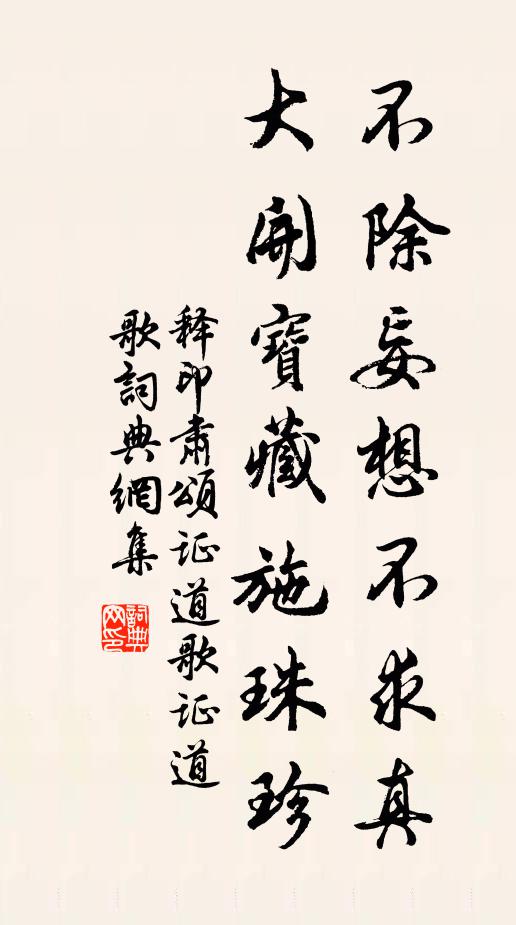 不除妄想不求真
大開寶藏施珠珍
释印肃頌证道歌证道
歌詞典網集
詞典网印